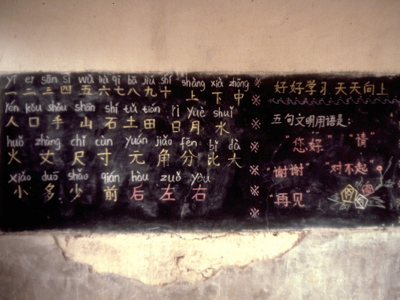 yī èr sān sì wǔ liù qī bā jiǔ shí shàng xià zhōng
一二三四五六七八九十 上 下 中
rén kǒu shǒu shān shí tǔ tián rì yuè shuǐ
人 口 手 山 石 土 田 日 月 水
huǒ zhàng chǐ cùn yuán jiǎo fēn bǐ dà
火 丈 尺 寸 元 角 分 比 大
xiǎo duō shǎo qián hòu zuǒ yòu
小 多 少 前 后 左 右
好好学习 天天向上
五句文明用语是:
"您好" " 情"
谢谢" "对不起"
再见